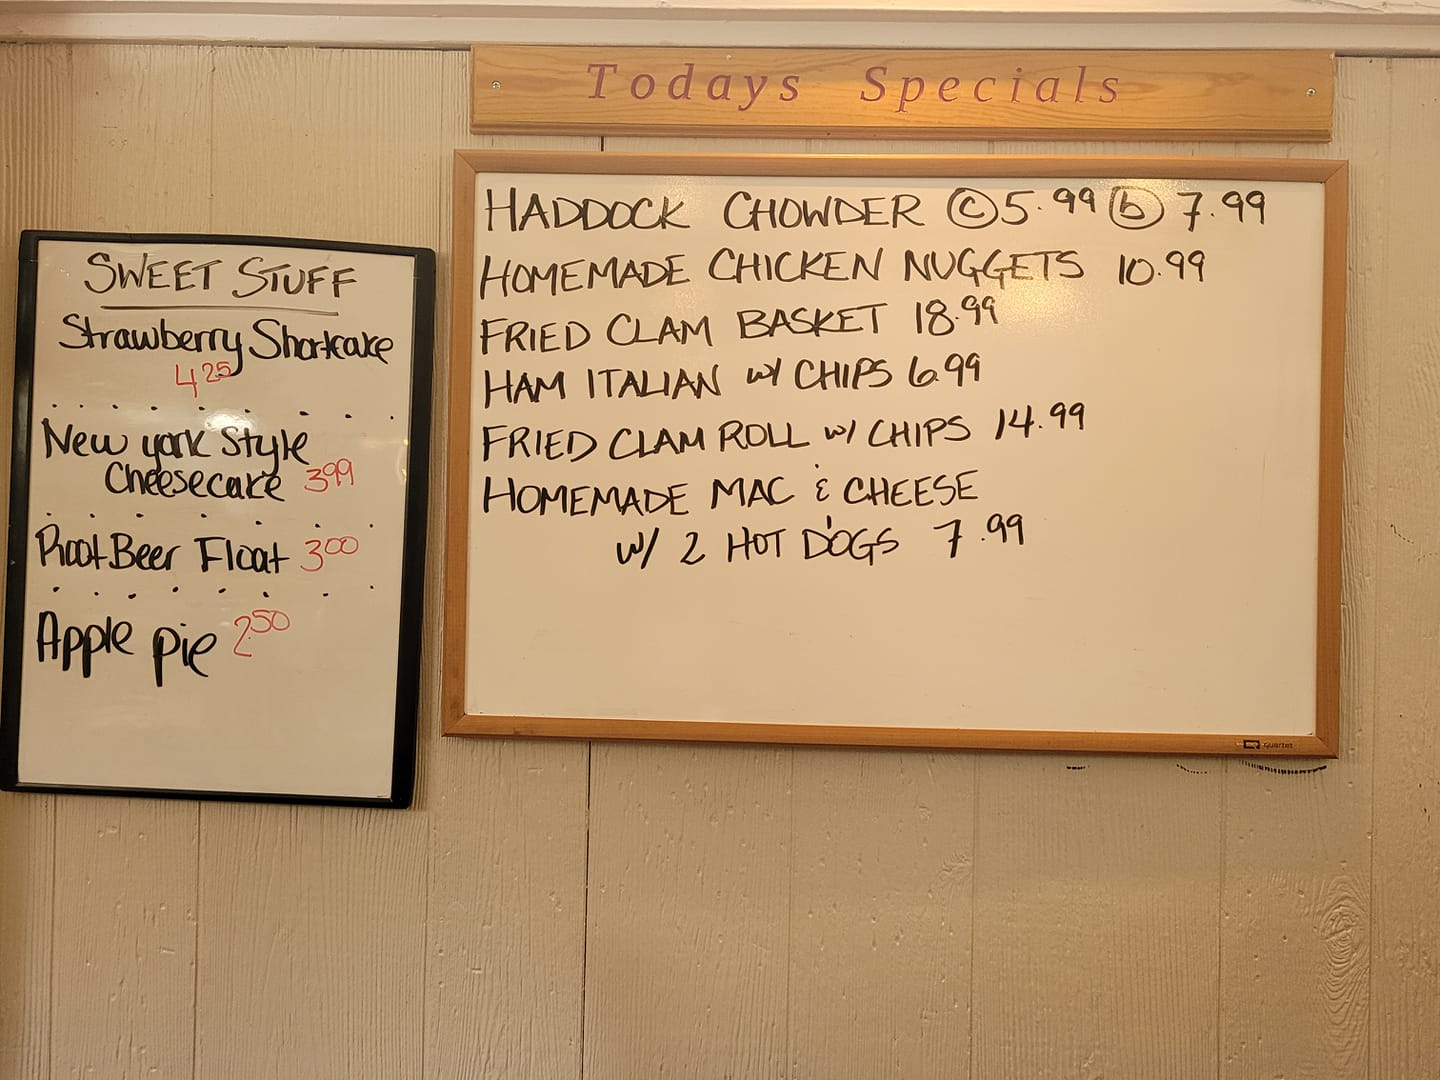 Todays Specials
HADDOCK CHOWDER ⓒ 5.99 ⓑ 7.99
HOMEMADE CHICKEN NUGGETS 10.99
FRIED CLAM BASKET 18.99
HAM ITALIAN w/ CHIPS 6.99
FRIED CLAM ROLL w/ CHIPS 14.99
HOMEMADE MAC & CHEESE
w/ 2 HOT DOGS 7.99
quartet
SWEET STUFF
Strawberry Shortcake
4.25
New york Style
Cheesecake 399
Root Beer Float 300
Apple pie 2.50